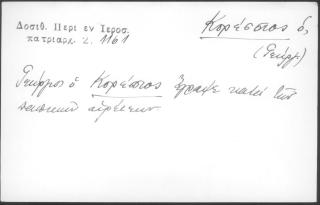 Δοσιθ. Περι εν Ιεροσ.
πατριαρχ. Σ. 1161
Κορέσσιος ὁ,
(Γεώργ)
Γεώργιος ὁ Κορέσσιος ἔγραψε κατὰ τῶν
παπικῶν αἱρέσεων